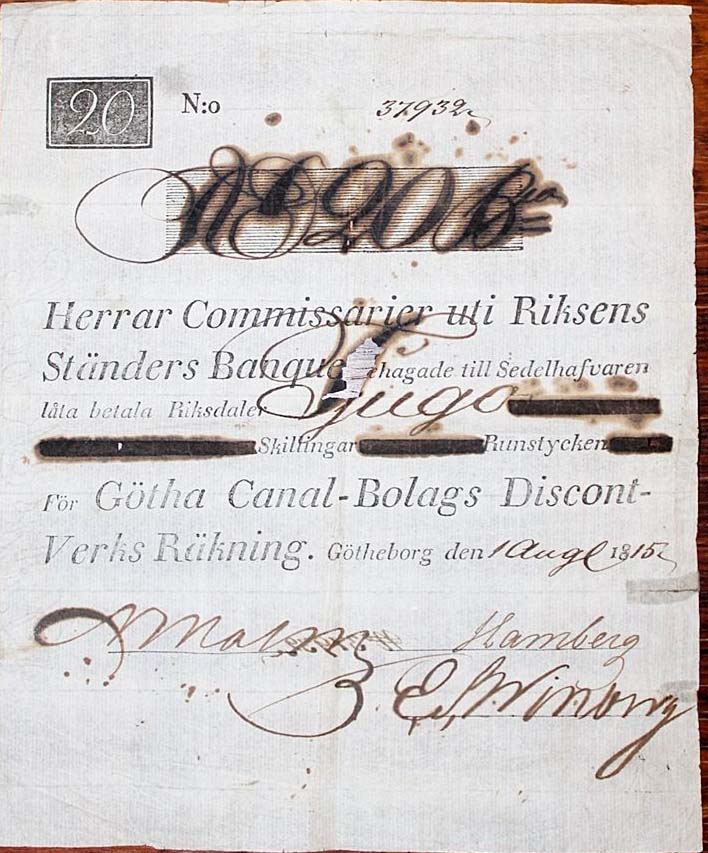 20 N:o 37932
20 Bco
Herrar Commissarier uti Riksens
Ständers Banque behagade till Sedelhafvaren
låta betala Riksdaler Tjugo
Skillingar Runstycken
För Götha Canal-Bolags Discont-
Verks Räkning. Götheborg den 1 Aug 1815
Malm Hamberg